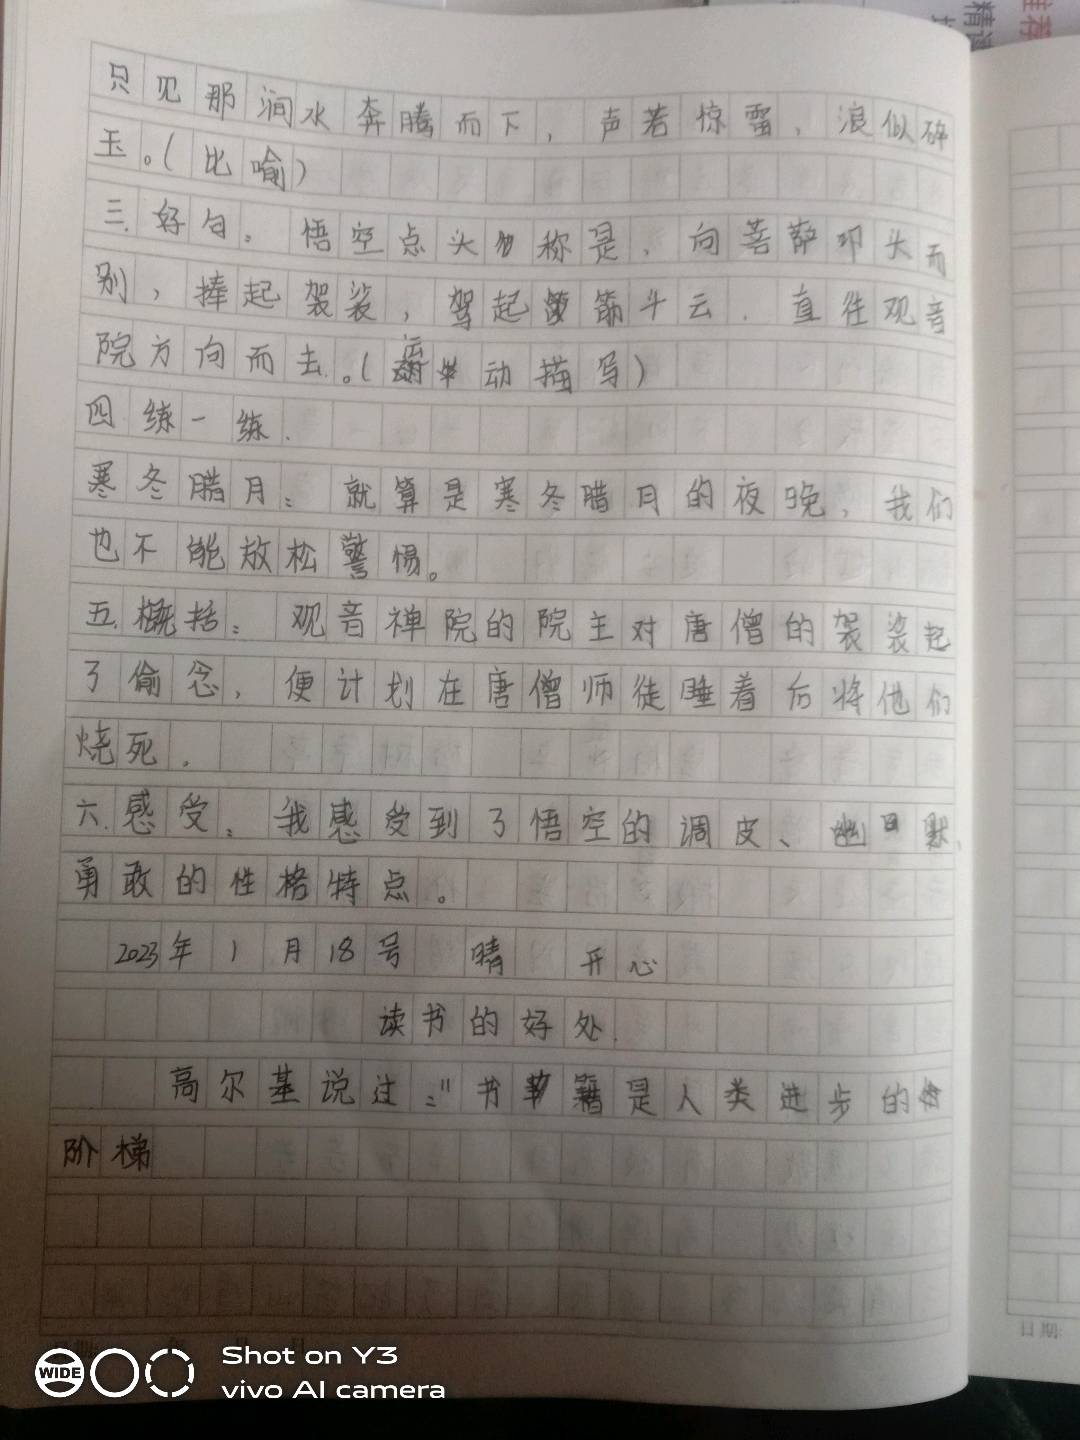 推荐
精读
只见那涧水奔腾而下，声若惊雷，浪似碎
玉。（比喻）
三.好句：悟空点头称是，向菩萨叩头而
别，捧起袈裟，驾起筋斗云．直往观音
院方向而去。（运动描写）
四 练一练．
寒冬腊月：就算是寒冬腊月的夜晚，我们
也不能放松警惕。
五.概括：观音禅院的院主对唐僧的袈裟起
了偷念，便计划在唐僧师徒睡着后将他们
烧死．
六.感受：我感受到了悟空的调皮、幽默、
勇敢的性格特点。
2023年1月18号 晴 开心
读书的好处．
高尔基说过："书籍是人类进步的
阶梯
日期:
WIDE
Shot on Y3
vivo AI camera